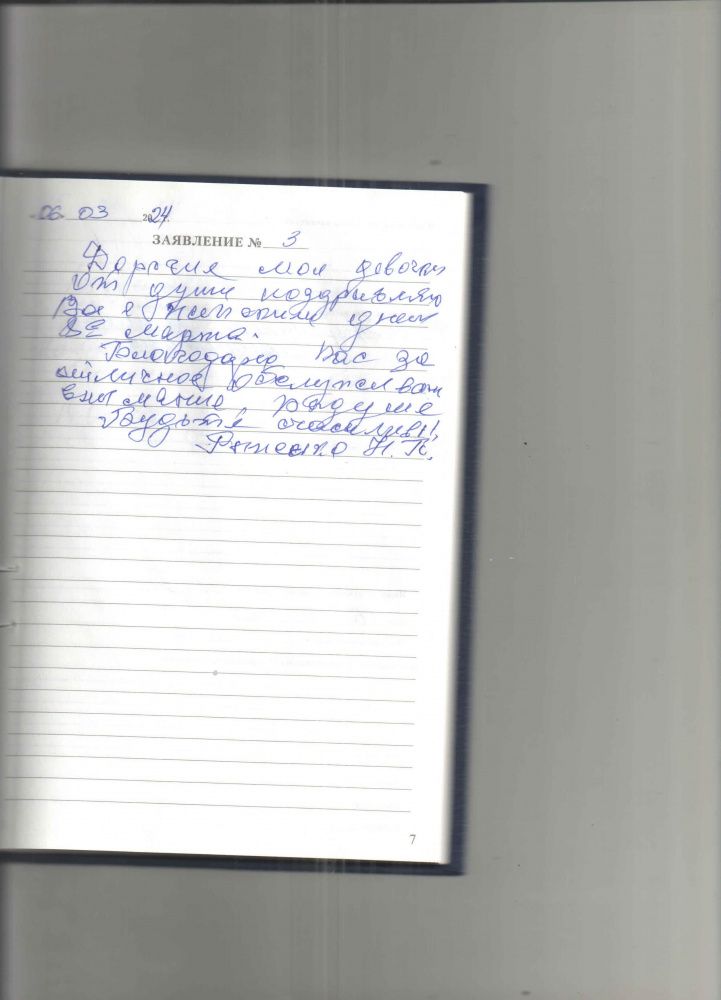 06 03 2024г.
ЗАЯВЛЕНИЕ № 3
Дорогие мои девочки
От души поздравляю
Вас с женским днем
8Е марта.
Благодарю Вас за
отличное обслуживан
внимание, радушие
Будьте счастливы!
Н. П.
7